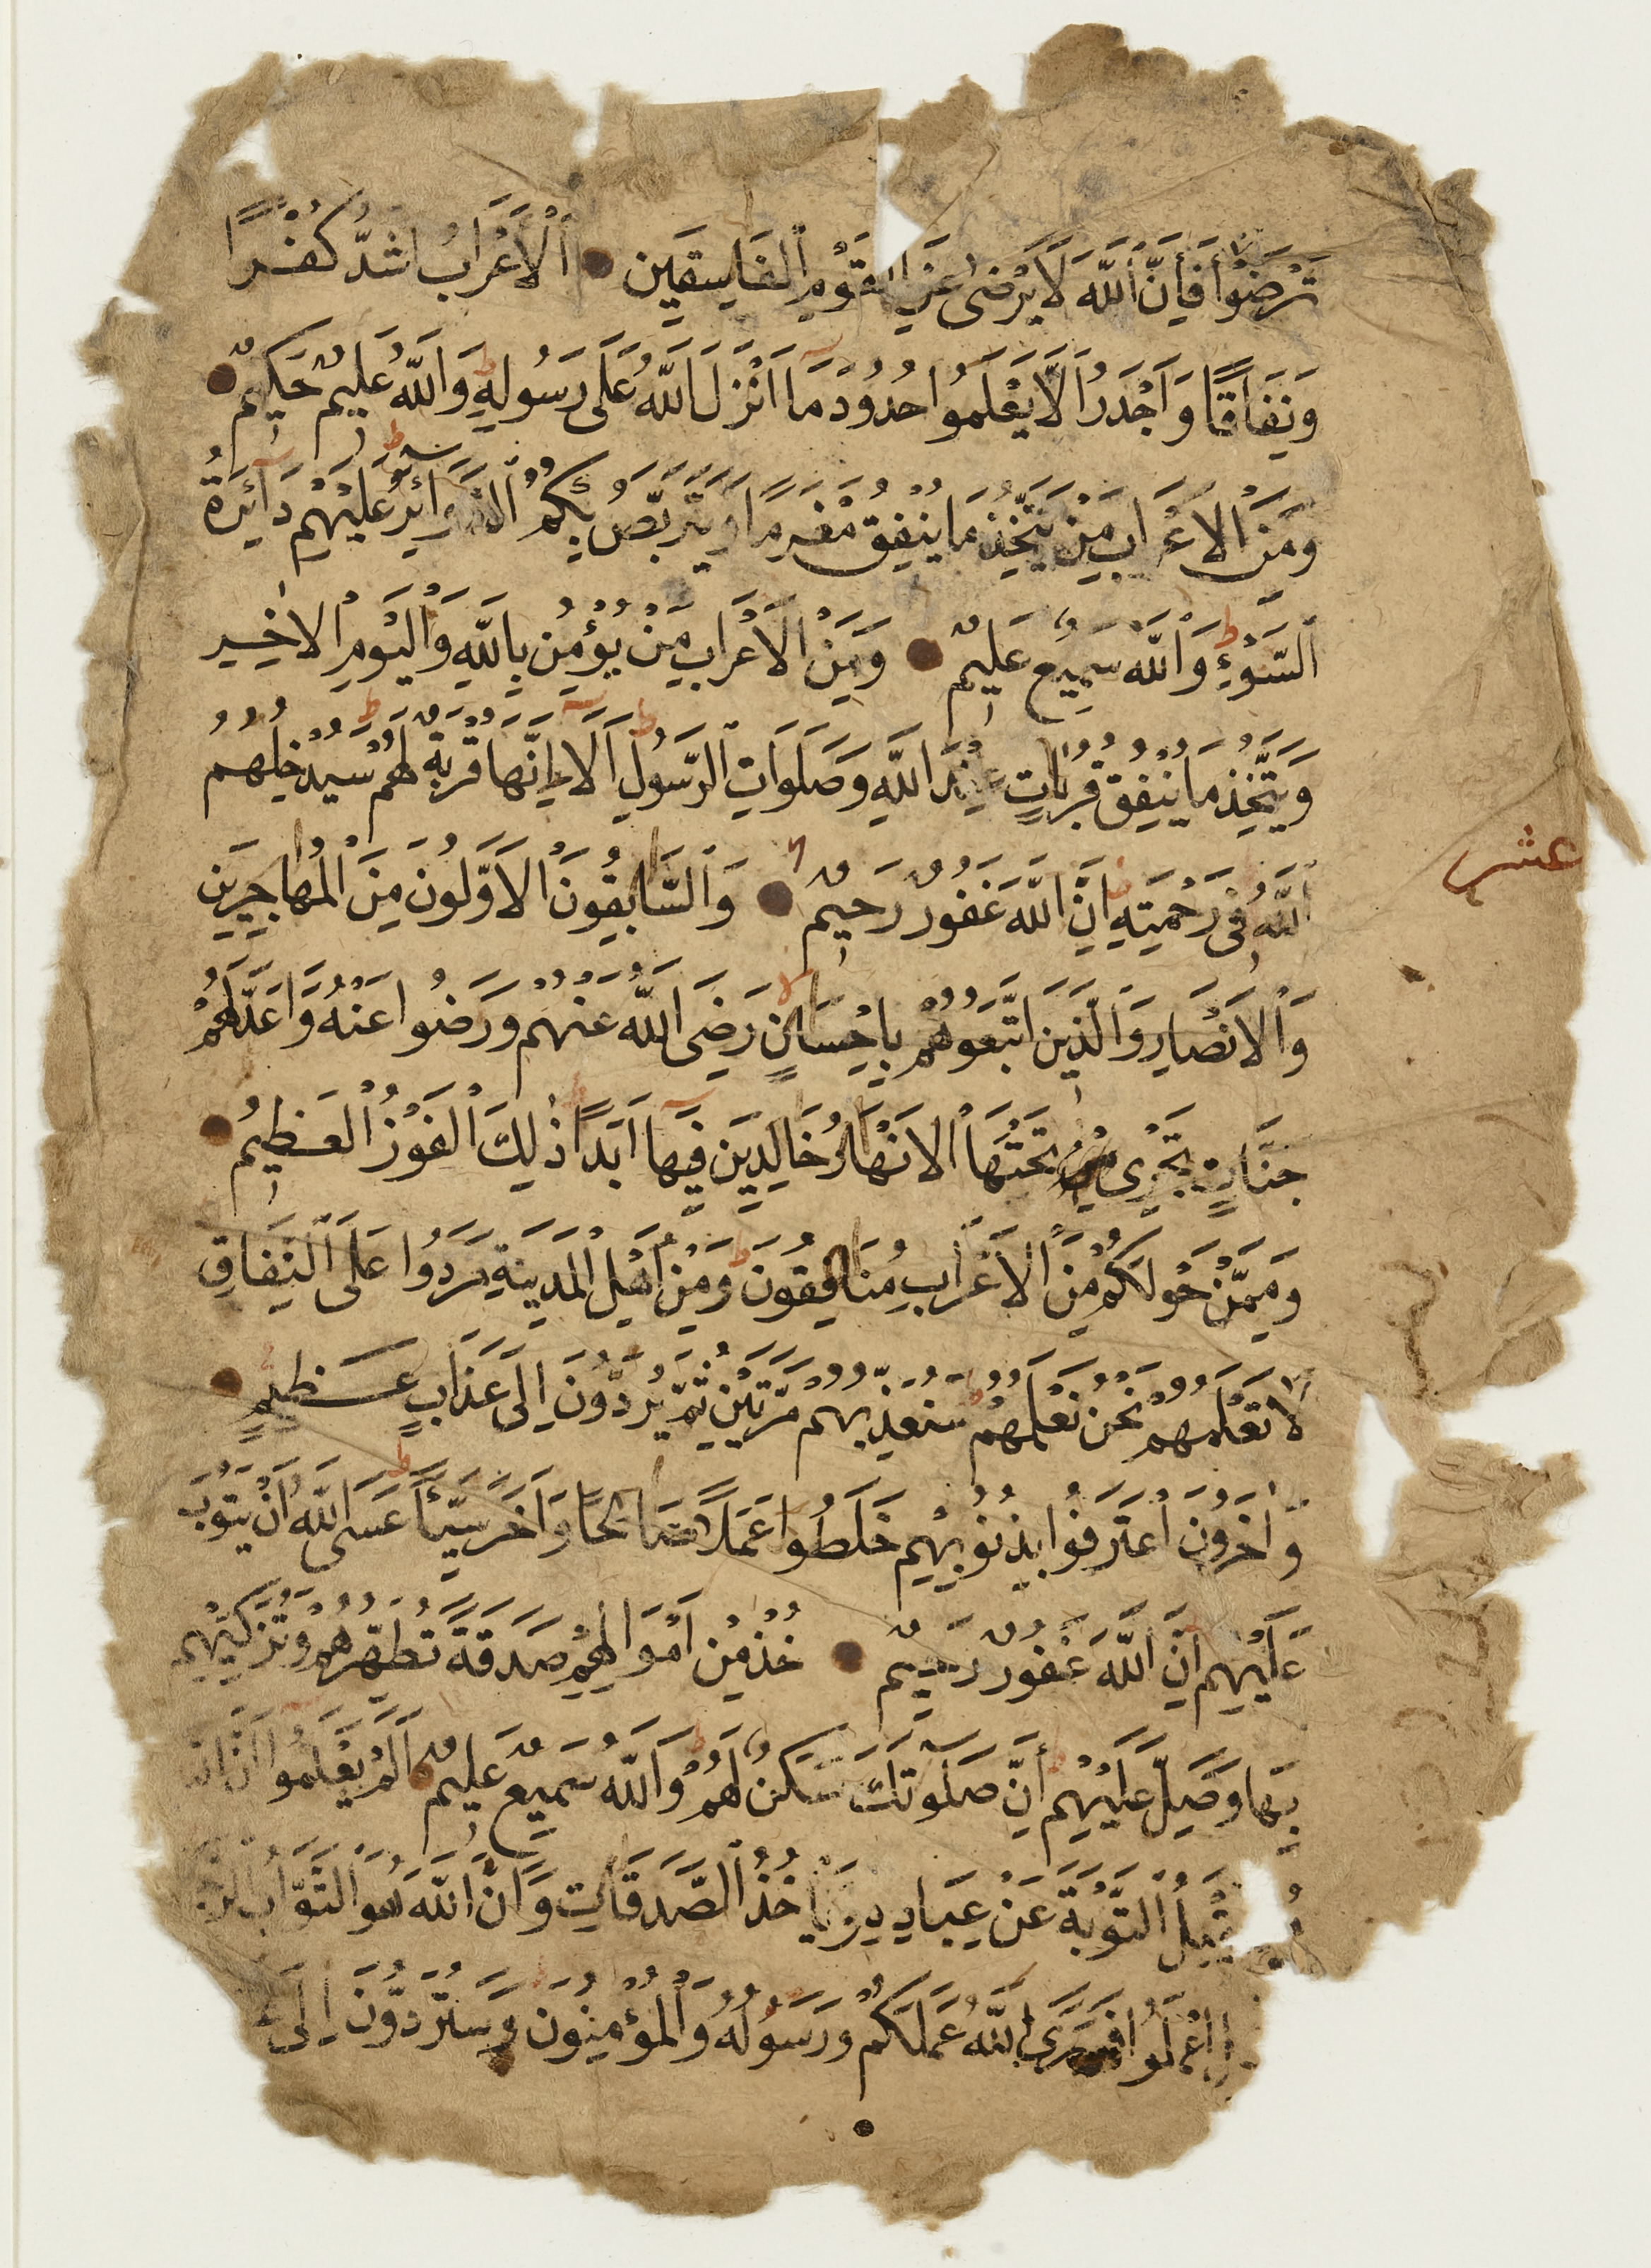 تَرْضَوْا فَإِنَّ ٱللَّهَ لَا يَرْضَى عَنِ الْقَوْمِ ٱلْفَاسِقِينَ ٱلْأَعْرَابُ اَشَدُّ كُفْرًا
وَنِفَاقًا وَاَجْدَرُ اَلَّا يَعْلَمُوا حُدُودَ مَا اَنْزَلَ اللَّهُ عَلَى رَسُولِهِ وَاللَّهُ عَلِيمٌ حَكِيمٌ
وَمِنَ الْاَعْرَابِ مَنْ يَتَّخِذُ مَا يُنْفِقُ مَغْرَمًا وَيَتَرَبَّصُ بِكُمُ الدَّوَائِرَ عَلَيْهِمْ دَآئِرَةُ
ٱلسَّوْءِ وَٱللَّهُ سَمِيعٌ عَلِيمٌ وَمِنَ الْاَعْرَابِ مَنْ يُؤْمِنُ بِاللَّهِ وَالْيَوْمِ الْاٰخِرِ
وَيَتَّخِذُ مَا يُنْفِقُ قُرُبَاتٍ عِنْدَ اللَّهِ وَصَلَوَاتِ الرَّسُولِ اَلَآ اِنَّهَا قُرْبَةٌ لَهُمْ سَيُدْخِلُهُمُ
ٱللَّهُ فِى رَحْمَتِهِ اِنَّ اللَّهَ غَفُورٌ رَحِيمٌ وَالسَّابِقُونَ الْاَوَّلُونَ مِنَ الْمُهَاجِرِينَ
عشر
وَالْاَنْصَارِ وَالَّذِينَ اتَّبَعُوهُمْ بِاِحْسَانٍ رَضِىَ اللَّهُ عَنْهُمْ وَرَضُوا عَنْهُ وَاَعَدَّ لَهُمْ
جَنَّاتٍ تَجْرِى مِنْ تَحْتِهَا الْاَنْهَارُ خَالِدِينَ فِيهَا اَبَدًا ذٰلِكَ الْفَوْزُ الْعَظِيمُ
وَمِمَّنْ حَوْلَكُمْ مِنَ الْاَعْرَابِ مُنَافِقُونَ وَمِنْ اَهْلِ الْمَدِينَةِ مَرَدُوا عَلَى النِّفَاقِ
لَا تَعْلَمُهُمْ نَحْنُ نَعْلَمُهُمْ سَنُعَذِّبُهُمْ مَرَّتَيْنِ ثُمَّ يُرَدُّونَ اِلَى عَذَابٍ عَظِيمٍ
وَاٰخَرُونَ اعْتَرَفُوا بِذُنُوبِهِمْ خَلَطُوا عَمَلًا صَالِحًا وَاٰخَرَ سَيِّئًا عَسَى اللَّهُ اَنْ يَتُوبَ
عَلَيْهِمْ اِنَّ اللَّهَ غَفُورٌ رَحِيمٌ خُذْ مِنْ اَمْوَالِهِمْ صَدَقَةً تُطَهِّرُهُمْ وَتُزَكِّيهِمْ
بِهَا وَصَلِّ عَلَيْهِمْ اِنَّ صَلَوٰتَكَ سَكَنٌ لَهُمْ وَاللَّهُ سَمِيعٌ عَلِيمٌ اَلَمْ يَعْلَمُوا اَنَّ
يَقْبَلُ التَّوْبَةَ عَنْ عِبَادِهِ وَيَأْخُذُ الصَّدَقَاتِ وَاَنَّ اللَّهَ هُوَ التَّوَّابُ
اعْمَلُوا فَسَيَرَى اللَّهُ عَمَلَكُمْ وَرَسُولُهُ وَالْمُؤْمِنُونَ وَسَتُرَدُّونَ اِلَى